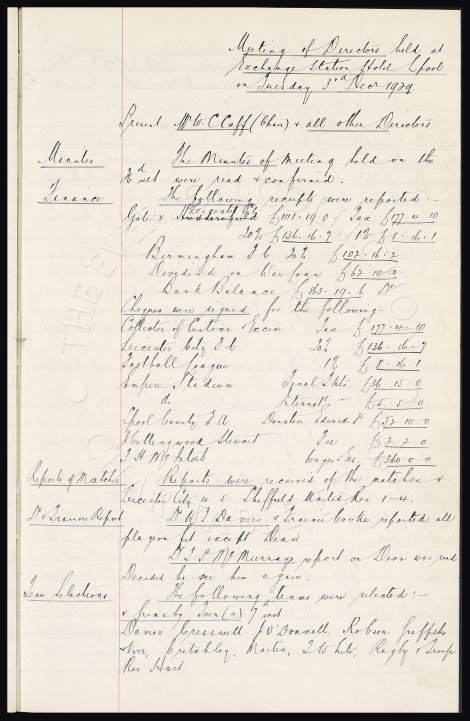 Meeting of Directors held at
Exchange Station Hotel L'pool
on Tuesday 3rd Decr 1929
Present Mr W C Cuff (Chair) & all other Directors
Minutes The Minutes of Meeting held on the
ult were read & confirmed.
Finance The following receipts were reported:-
Gate v Leicester City £1111.19.0 Tax £177.4.10
20% £136.16.7 1% £8.16.1
Birmingham F C 20% £102.16.2
Dividend on War Loan £62.10.0
Bank Balance Dr
Cheques were signed for the following:-
Collector of Customs & Excise Tax £177.4.10
Leicester City F C 20% £136.16.7
Football League 1% £8.16.1
Empire Stadium Final Tkts £36.15.0
do Internatl £5.5.0
L'pool County F A Donation £52.10.0
Hollingwood Stewart Fee £2.2.0
T H McIntosh Wages £360.0.0
Reports of Matches Reports were received of the matches v
Leicester City 4-5 Sheffield United Res 1-4.
Dr & Trainers Report Dr W J Davies & Trainer Cooke reported all
players fit except Dean
Dr McMurray's report on Dean was read
Decided he see him again.
Team Selections The following teams were selected:-
v Grimsby Town (a) 7th inst
Davies Cresswell & O'Donnell, Robson Griffiths
Critchley, Martin, White, Rigby & Troup
Res Hart